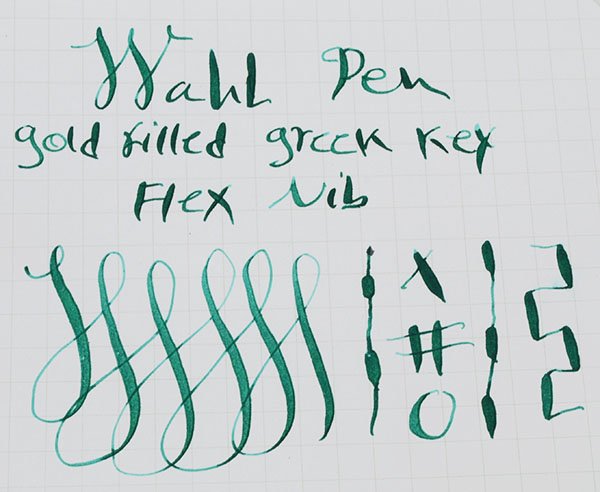 Wahl Pen
gold filled greek key
Flex Nib
x
#
O